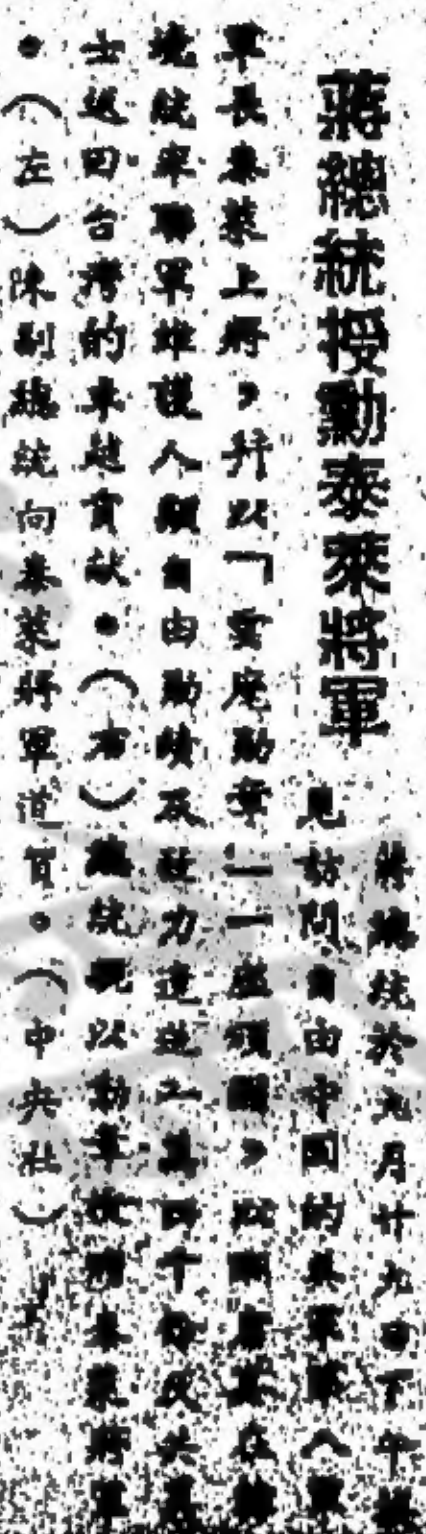 蔣總統授勳泰萊將軍
蔣總統於九月廿九日下午
見訪問自由中國的美軍第八軍
軍長泰萊上將,并以「雲麾勳章」一座頒贈,以
統率聯軍維護人類自由勳績及致力遣返一萬四千餘反共義
士返回台灣的卓越貢献。(右)總統親以勳章頒贈泰萊將軍
。(左)陳副總統向泰萊將軍道賀。(中央社)